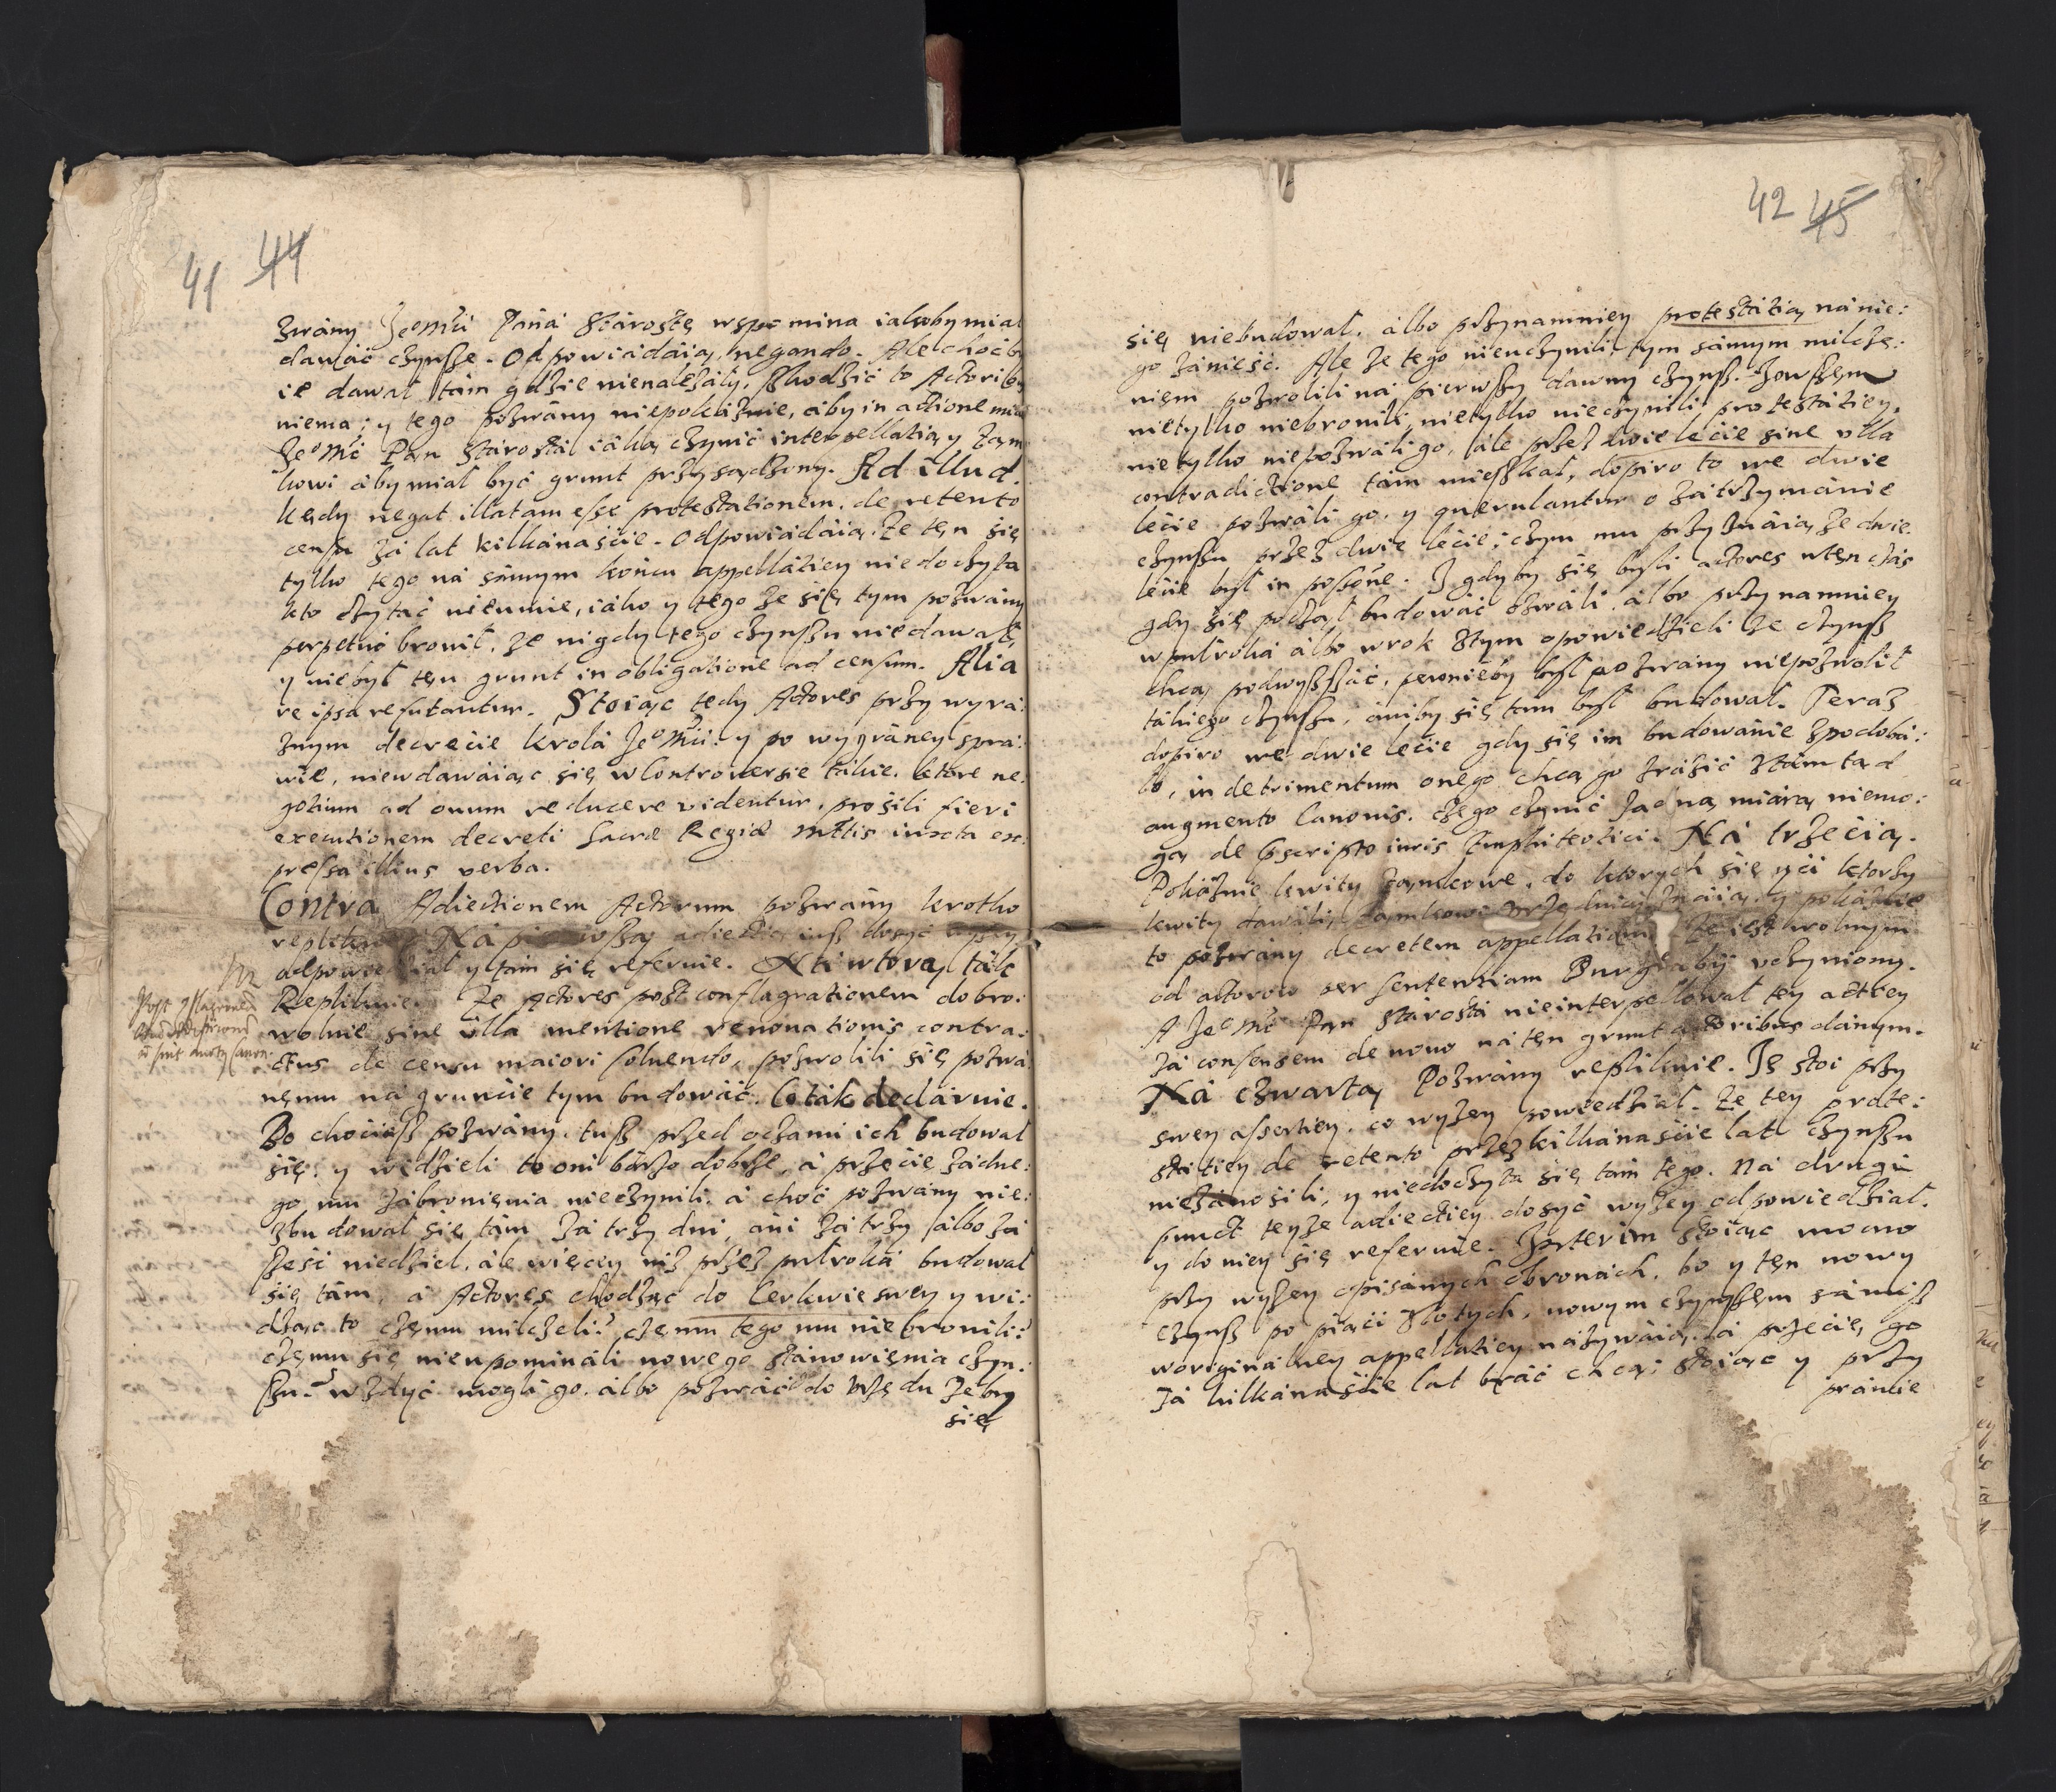 41 44
zwány Jeomći Páná Stárostę wspomina iakoby miał
dawáć czynsze. Odpowiádáią negando. Ale choćby
ie dawał tám gdzie nienależáły. Szkodzić to Actoribus
niema; y tego pozwány niepokáżuie, áby in actione miał
Jeomć Pan Stárostá iáką czynić interpellatią y zam
kowi áby miał być grunt przysądzony. Ad illud.
Kędy negat illatam esse protestationem. de retento
censu zá lat kilkánaście. Odpowiádáią. Że ten się
tylko tego ná sámym końcu appellátiey niedoczyta
kto czytáć nieumie, iáko y tego że się tym pozwány
perpetuò bronił, że nigdy tego czynszu niedawał,
y niebył ten grunt in obligatione ad censum. Alia
re ipsa refutantur. Stoiąc tedy Actores przy wyrá:
źnym decrecie Krolá Jeomći: y po wygráney sprá:
wie, niewdawáiąc się w Controwersie tákie. ktore ne:
gotium ad ouum reducere videntur. prosili fieri
executionem decreti Sacræ Regiæ Mttis iuxta ex:
pressa illius verba.
Contra Adiectionem Actorum pozwány krotko
replikuie Ná pierwszą adiectią iusz dosyć wyszy
odpowiedział y tám się referuie. Ná wtorą ták
Replikuie. Że Actores post conflagrationem dobro:
wolnie sine ulla mentione renouationis contra:
ctus de censu maiori soluendo, pozwolili się pozwá
nemu ná gruncie tym budowáć. Co ták declaruie.
Bo chociasz pozwány. tusz przed oczami ich budował
się, y widzieli to oni bárzo dobrze, á przecię żádne:
go mu zábronienia nieczynili. á choć pozwány nie:
zbudował się tám zá trzy dni, áni zá trzy álbo zá
sześć niedziel. ále więcey niż przez pułroká budował
się tám, á Actores chodząc do Cerkwie swey y wi:
dząc to czemu milczeli? czemu tego mu niebronili?
czemu się nieupomináli nowego stánowienia czyn:
szu? wzdyć mogli go. álbo pozwáć do Urzędu żeby
się
Post
42 45
się niebudował. álbo przynamniey protestátią ná nie:
go zánieść. Ale że tego nieuczynili, tym sámym milcze:
niem pozwolili ná pierwszy dawny czynsz. Jowszem
nietylko niebronili, nietylko nieczynili protestátiey,
nietylko niepozwáli go, ále przez dwie lecie sine ulla
contradictione tám mieszkał, dopiro to we dwie
lecie pozwáli go. y querulantur o zátrzymánie
czynszu przez dwie lecie; czym mu przyznáią że dwie
lecie był in possone. I gdyby się byli actores wten czás
gdy się począł budowáć ozwáli. álbo przynamniey
w pułroká álbo wrok z tym opowiedzieli że czynsz
chcą podwyszszáć, pewnieby był pozwány niepozwolił
tákiego czynszu, ániby się tam był budował. Teraz
dopiro we dwie lecie gdy się im budowánie zpodobá:
ło, in detrimentum onego chcą go zrázić ztámtąd
augmento Canonis. Czego czynić żadną miárą niemo:
gą de præscripto iuris Emphiteotici. Ná trzecią.
Pokázuie kwity zamkowe. do ktorych się y ci ktorzy
kwity dawáli, zamkowi urzędnicy znáią. y pokázuie
to pozwány decretem appellationis. że iest wolnym
od actorow per sententiam Burgrabij uczyniony.
A Jeomć Pan Stárostá nieinterpellował tey actiey
zá consensem de nouo ná ten grunt actoribus dánym.
Ná czwartą Pozwány replikuie. Iż stoi przy
swey assertiey. co wyżey powiedział. że tey prote:
státiey de retento przez kilkánaście lat czynszu
niezánosili, y niedoczyta się tám tego. Ná drugi
punct teyże adiectiey dosyć wyżey odpowiedział.
y do niey się referuie. Interim stoiąc mocno
przy wyżey opisánych obronách, bo y ten nowy
czynsz po piąci złotych, nowym czynszem sámisz
woriginálney appellatiey názywáią, á przecię go
zá kilkánaście lat bráć chcą; stoiąc y przy
práwie